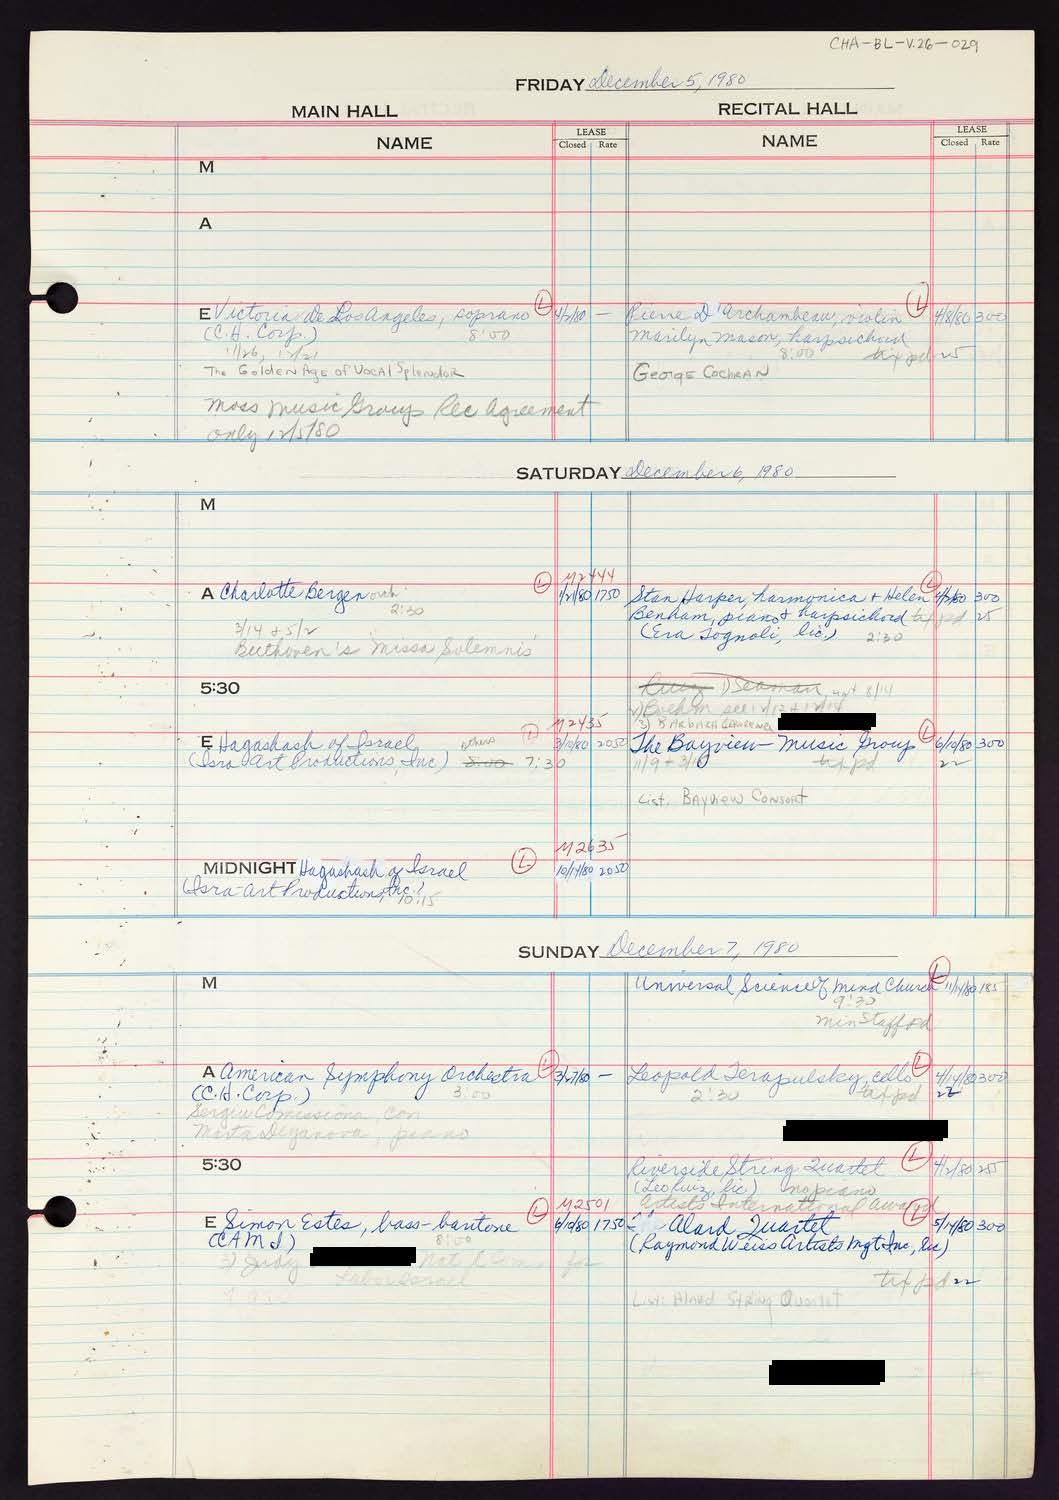 CHA-BL-V.26-029
FRIDAY December 5, 1980
MAIN HALL
RECITAL HALL
NAME
LEASE
Closed Rate
NAME
LEASE
Closed Rate
M
A
E Victoria de Los Angeles, soprano L 4/2/80 —
(C.H. Corp.) 8:00
11/26, 12/21
The Golden Age of Vocal Splendor
Moss Music Group Rec Agreement
only 12/5/80
Pierre D'Archambeau, violin L 4/8/80 300
Marilyn Mason, harpsichord
8:00 tix pd 25
George Cochran
SATURDAY December 6, 1980
M
M2444
A Charlotte Bergen orch. L 1/21/80 1750
2:30
3/14 + 5/2
Beethoven's Missa Solemnis
Stan Harper, harmonica + Helen L 300
Benham, piano + harpsichord tix pd 25
(Era Tognoli, lic.) 2:30
5:30
Seaman, 8/14
2) Boehm see 12/12 + 12/14
3)
M2435
E Hagashash of Israel L 3/10/80 2050
(Isra-Art Productions, Inc) 8:00 7:30
The Bayview Music Group L 6/10/80 300
11/9 + tix pd 22
List. Bayview Consort
M2635
MIDNIGHT Hagashash of Israel L 10/14/80 2050
(Isra-Art Productions, Inc.) 10:15
SUNDAY December 7, 1980
M
Universal Science of Mind Church L 11/14/80 185
9:30
min Stafford
A American Symphony Orchestra L 3/27/80 —
(C.H. Corp.) 3:00
Sergiu Comissiona, con
Marta Deyanova, piano
Leopold Teraspulsky, cello L 4/14/80 300
2:30 tix pd 22
5:30
Riverside String Quartet L 4/2/80 25
(Leo Ruiz, lic) no piano
Artists International Award
M2501
E Simon Estes, bass-baritone L 6/10/80 1750
(CAMI) 8:00
3) Judy Nat'l Comm for
Labor Israel
Alard Quartet L 5/14/80 300
(Raymond Weiss Artists Mgt Inc, lic)
tix pd 22
List: Alard String Quartet